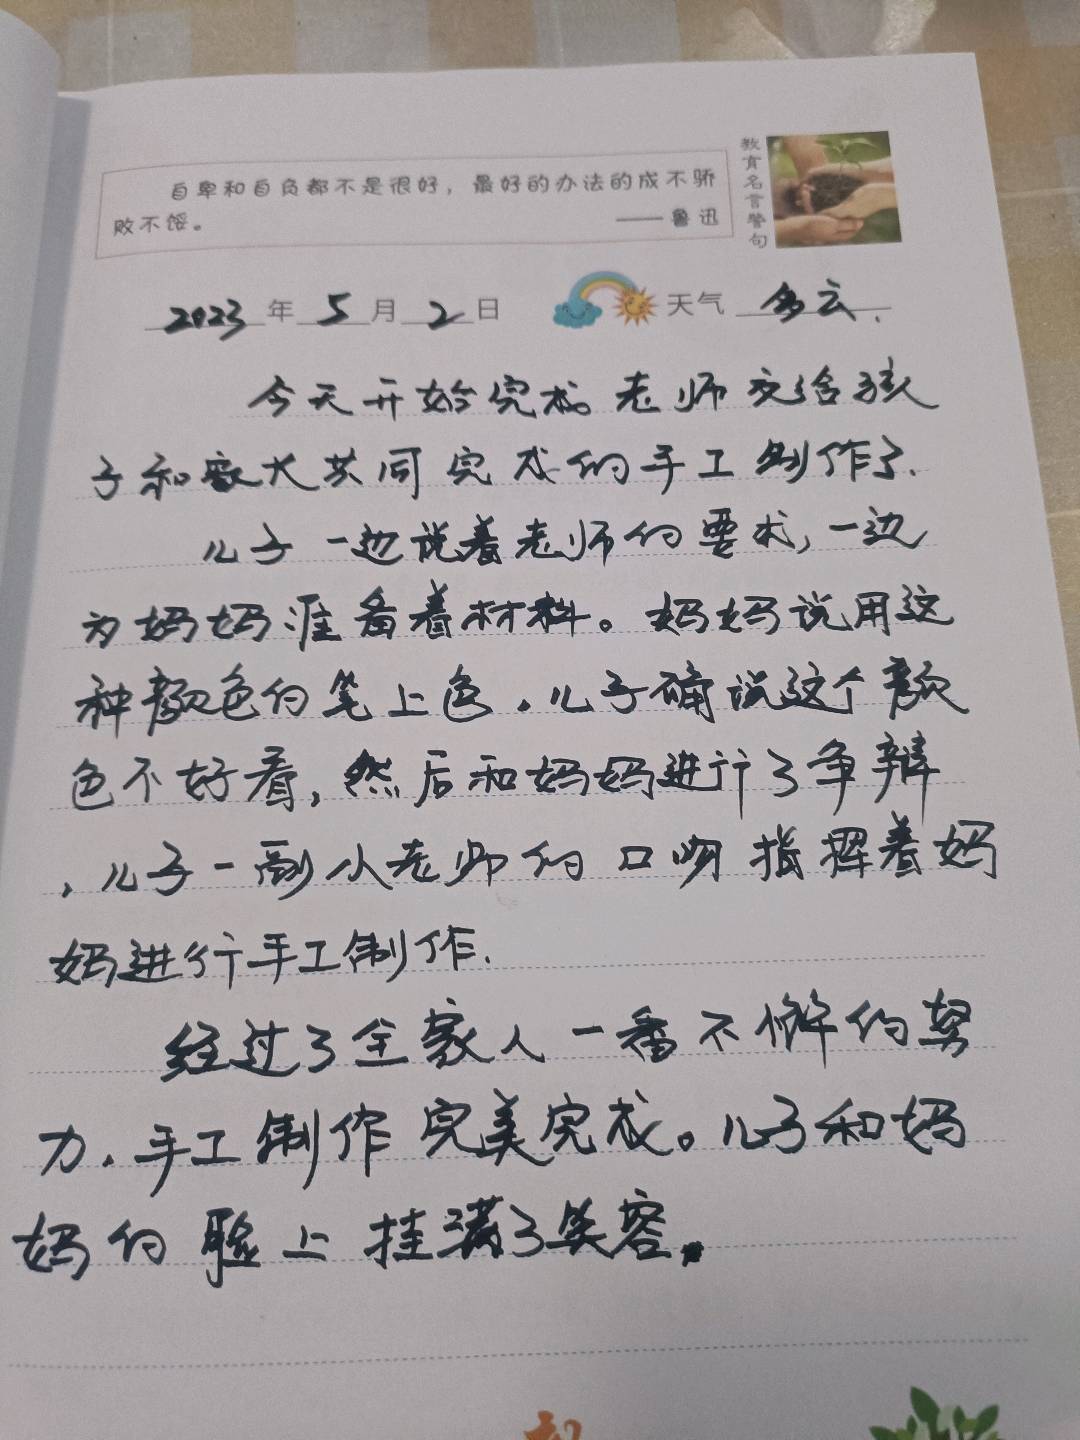 自卑和自负都不是很好，最好的办法的成不骄
败不馁。
——鲁迅
教育名言警句
2023年5月2日 天气 多云.
今天开始完成老师交给孩
子和家大共同完成的手工制作了.
儿子一边说着老师的要求,一边
为妈妈准备着材料。妈妈说用这
种颜色的笔上色,儿子确说这个颜
色不好看,然后和妈妈进行了争辩
,儿子一副小老师的口吻指挥着妈
妈进行手工制作.
经过了全家人一番不懈的努
力.手工制作完美完成。儿子和妈
妈的脸上挂满了笑容。